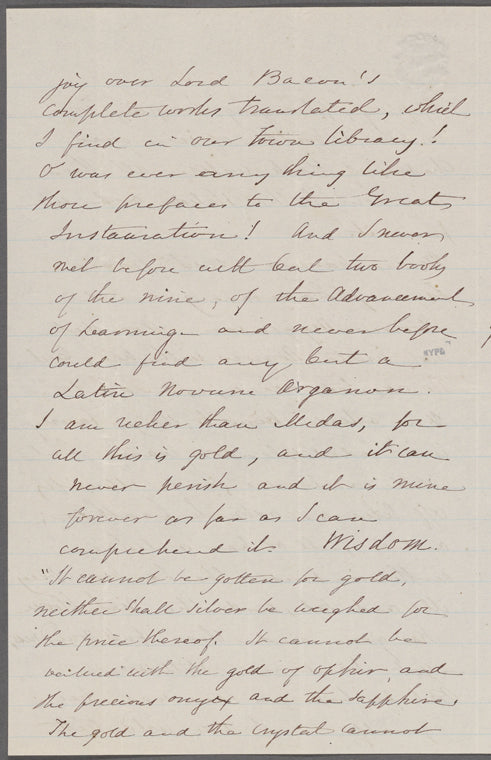 joy over Lord Bacon's
complete works translated, which
I find in our town library!
O was ever any thing like
those prefaces to the Great
Instauration! And I never
met before with but two books
of the nine, of the Advancement
of Learning and never before
could find any but a
NYPL
Latin Novum Organon.
I am richer than Midas, for
all this is gold, and it can
never perish and it is mine
forever as far as I can
comprehend it. Wisdom.
"It cannot be gotten for gold,
neither shall silver be weighed for
the price thereof. It cannot be
valued with the gold of ophir, and
the precious onyx and the sapphire.
The gold and the crystal cannot